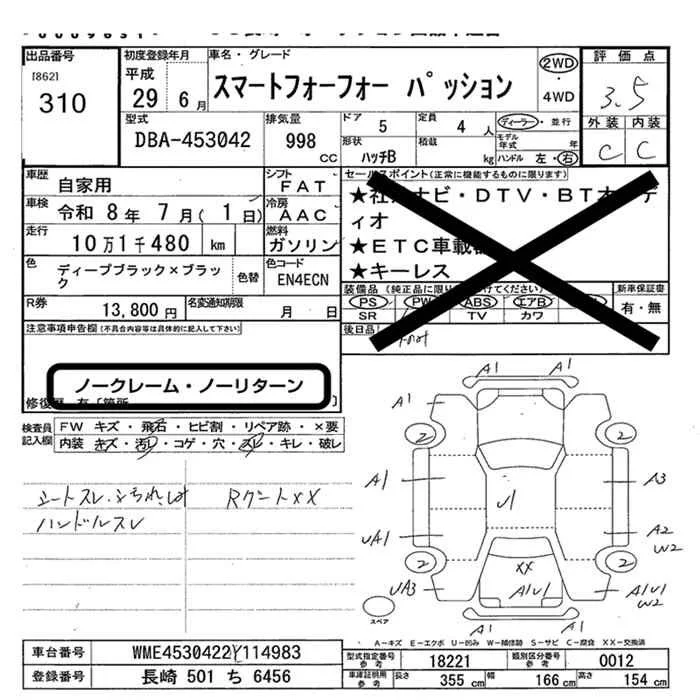 出品番号
[862]
310
初度登録年月
平成
29年 6月
車名・グレード
スマートフォーフォー パッション
2WD
・
4WD
評価点
3.5
外装 内装
C C
型式
DBA-453042
排気量
998
CC
ドア 5
定員 4 人
ディーラー・並行
形状
ハッチB
積載
kg
モデル年式 年
ハンドル 左・右
車歴
自家用
シフト
FAT
車検
令和 8年 7月( 1日)
冷房
AAC
走行
10万1千480 km
燃料
ガソリン
色
ディープブラック×ブラック
色替
色コード
EN4ECN
R券
13,800円
名変通知期限
月 日
セールスポイント(正常に機能するものに限ります)
★社 ナビ・DTV・BTオ ディオ
★ETC車載器
★キーレス
装備品(純正品に限り てください)
PS PW ABS エアB
SR TV カワ
新車保証書
有・無
後日品
注意事項申告欄(不具合内容等は具体的に記入して下さい)
ノークレーム・ノーリターン
修復歴 有
検査員記入欄
FW キズ・飛石・ヒビ割・リペア跡・×要
内装 キズ・汚レ・コゲ・穴・スレ・キレ・破レ
シートスレ・
ハンドルスレ
Rゲートxx
A1
A1
A1
2
2
A1
A3
U1
UA1
A2
W2
2
2
XX
UA3
A1U1
A1U1
W2
A1
A1
スペア
A-キズ E-エクボ U-凹み W-補修跡 S-サビ C-腐食 XX-交換済
車台番号
WME4530422Y114983
登録番号
長崎 501 ち 6456
型式指定番号
参考
18221
類別区分番号
参考
0012
車庫証明用
参考
長さ 355 cm
幅 166 cm
高さ 154 cm